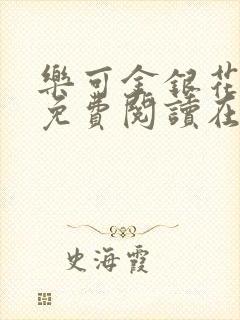 樂可金銀花
免費閱讀在
史海霞